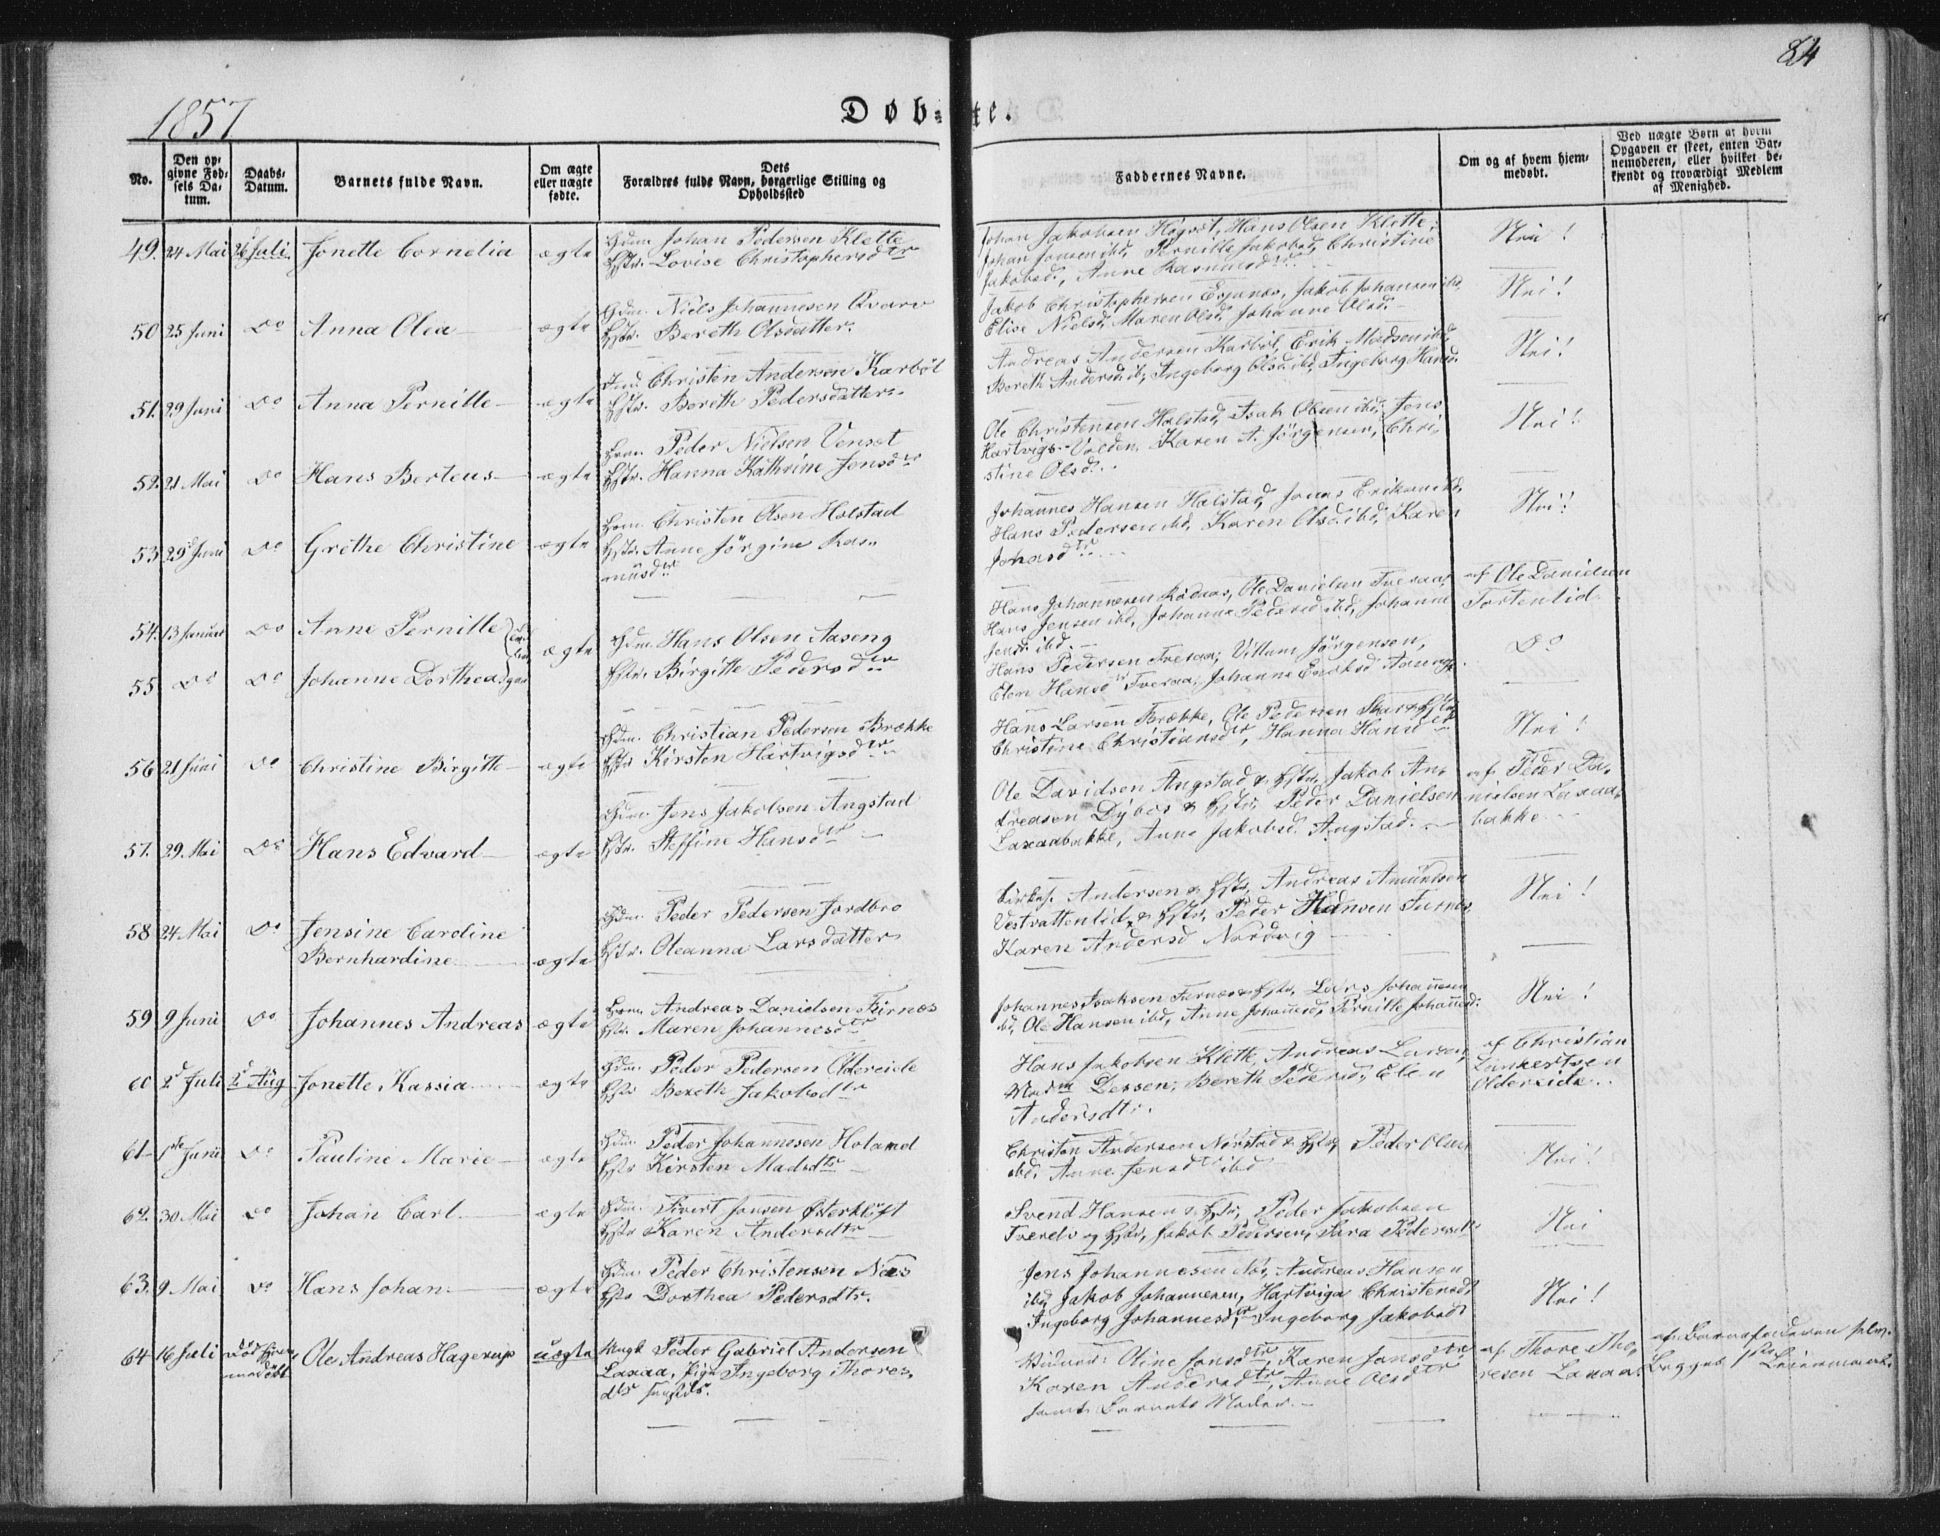 84
1857
Døb-te.
No.
Den op-
givne Fød-
sels Da-
tum.
Daabs-
Datum.
Barnets fulde Navn.
Om ægte
eller uægte
fødte.
Dets
Forældres fulde Navn, borgerlige Stilling og
Opholdssted
Faddernes Navne.
Om og af hvem hjem-
medøbt.
Ved uægte Børn af hvem
Opgaven er skeet, enten Bar-
nemoderen, eller hvilket be-
kjendt og troværdigt Medlem
af Menighed.
49. 24 Mai 26 Juli. Jonette Cornelia ægte
Gdm. Johan Pedersen Klette
Hstr. Lovise Christophersdtr
Johan Jakobsen Høgset, Hans Olsen Klette,
Johan Jonsen ibd, Pernille Jakobsd, Christine
Jakobsd, Anne Rasmusd
Nei!
50 25 Juni Do Anna Olea ægte
Gdm. Niels Johannesen Qvarv
Hstr. Bereth Olsdatter.
Jakob Christophersen Espenes, Jakob Johansen ibd,
Elise Nielsd, Maren Olsd, Johanne Olsd.
Nei!
51. 29 Juni Do Anna Pernille ægte
Ind. Christen Andersen Karbøl
Hstr. Bereth Pedersdatter.
Andreas Andersen Karbøl, Erik Madsen ibd,
Bereth Andersd ib, Ingeborg Olsd ibd, Ingeborg Hansd.
Nei!
52. 21 Mai Do Hans Berteus ægte
Peder Nielsen Venset
Hstr. Hanna Kathrine Jensdtr
Ole Christensen Halstad, Isak Olsen ibd, Jens
Hartvigs. Valden, Karen A. Jørgensen, Chri-
stine Olsd.
Nei!
53 29 Juni Do Grethe Christine ægte
Christen Olsen Holstad
Hstr. Anne Jørgine Ras-
musdtr
Johannes Hansen Halstad, Jonas Eriksen ibd,
Hans Pedersen ibd, Karen Olsd ibd, Karen
Jonasdtr
Nei!
54. 13 Januar Do Anne Pernille
ægte
Gdm. Hans Olsen Aaseng
Hstr. Birgitte Pedersdtr
Hans Johannesen Rødaas, Ole Danielsen Tveraa,
Hans Jensen ibd, Johanna Pedersd ibd, Johanna
Jensd ibd.
af Ole Danielsen
Tortenlid.
55. Do Do Johanne Dorthea
Hans Pedersen Tveraa, Villum Jørgensen,
Elen Hansdtr Tveraa, Johanne Eriksd
Do
56 21 Juni Do Christine Birgitte ægte
Gdm. Christian Pedersen Brække
Hstr. Kirsten Hartvigsdtr
Hans Larsen Brække, Ole Pedersen
Christine Christiansdtr, Hanna Hansdtr
Nei!
57. 29. Mai Do Hans Edvard ægte
Gdm. Jens Jakobsen Angstad
Hstr. Steffine Hansdtr
Ole Davidsen Angstad & Hstr, Jakob An-
dreasen Dybos & Hstr, Peder Danielsen
Laxaabakke, Anne Jakobsd. Angstad.
af Peder Da-
nielsen Laxaa-
bakke
58 24 Mai Do Jensine Caroline
Bernhardine ægte
Gdm. Peder Pedersen Jordbro
Hstr. Oleanna Larsdatter
Andersen & Hstr, Andreas Amundsen
Vestvattenlid & Hstr, Peder Hansen Furnes,
Karen Andersd Nordvig
Nei!
59 9 Juni Do Johannes Andreas ægte
Andreas Danielsen Furnæs
Hstr. Maren Johannesdtr
Johannes Isaksen Furnæs & Hstr, Lars Johannesen
ibd, Ole Hansen ibd, Anne Johannesd, Pernille Johannesd.
Nei!
60 2d Juli 2d Aug Jonette Kassia ægte
Gdm. Peder Pedersen Oldereide
Hstr Bereth Jakobsdtr
Hans Jakobsen Klette, Andreas Larsen,
Madm Dessen, Bereth Pedersd, Elen
Andersdtr.
af Christian
Linkertsen
Oldereide.
61 1ste Juni Do Pauline Marie ægte
Gdm. Peder Johannesen Holand
Hstr Kirsten Madsdtr
Christen Andersen Nørstad & Hstr, Peder Olsen
ibd, Anne Jensdtr ibd
Nei!
62. 30 Mai Do Johan Carl. ægte
Gdm. Sivert Jonsen Østerkløft
Hstr Karen Andersdtr
Svend Hansen & Hstr, Peder Jakobsen
Tverelv og Hstr, Jakob Pedersen, Sara Pedersdtr
Nei
63. 9 Mai Do Hans Johan. ægte
Gdm. Peder Christensen Næs
Hstr Dorthea Pedersdtr.
Jens Johannesen Nes, Andreas Hansen
ibd, Jakob Johannesen, Hartviga Christensd,
Ingeborg Johannesdtr, Ingeborg Jakobsd
Nei!
64 16 Juli død hjem-
medøbt Ole Andreas Hagerup uægte
Ungk. Peder Gabriel Andersen
Laxaa, Pige Ingeborg Thores-
dtr
Vidner: Oline Jonsdtr, Karen Jonsdtr
Karen Andersdtr, Anne Olsdtr
samt Barnets Moder.
af Thore Tho-
resen Laxaa.
af Barnefaderen selv.
Begges 1ste Leiermaal.